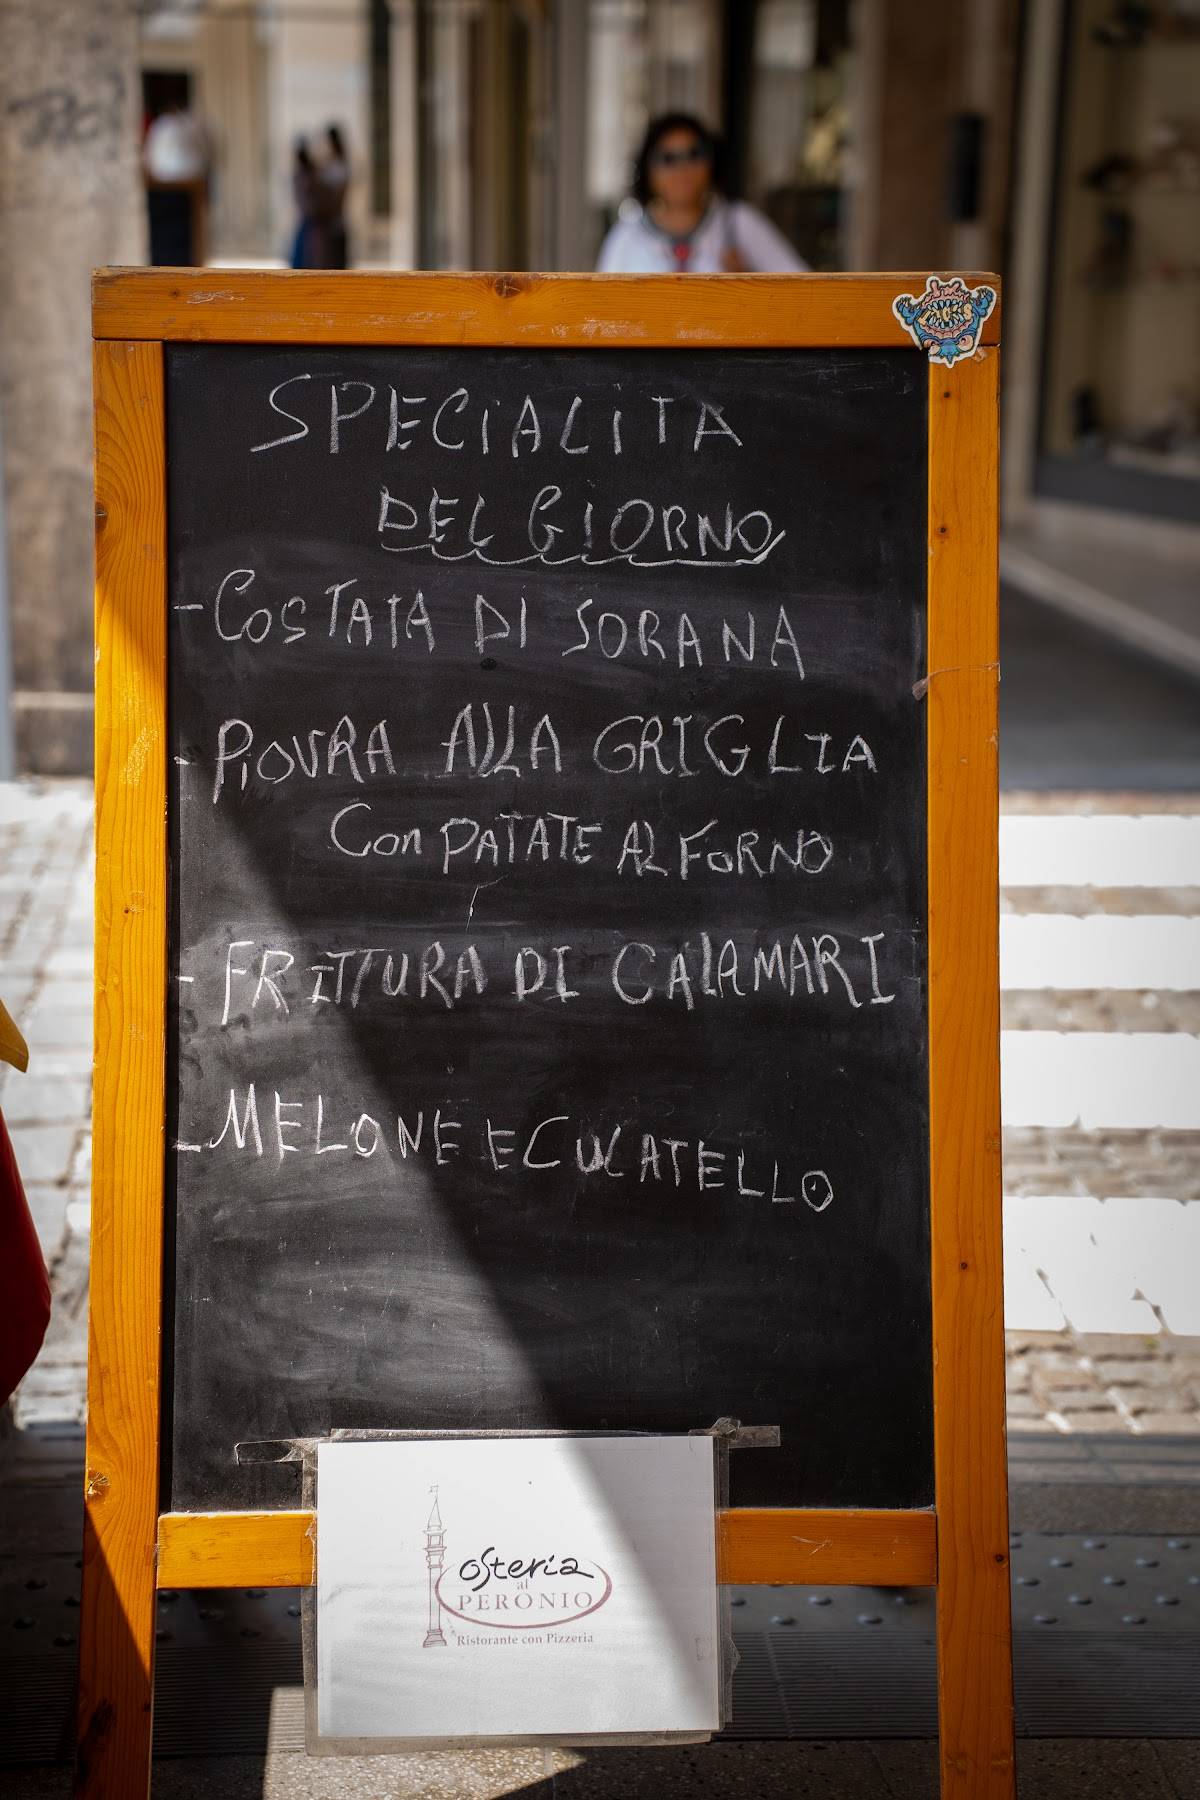 SPECIALITA
DEL GIORNO
- COSTATA DI SORANA
- PIOVRA ALLA GRIGLIA
Con PATATE AL FORNO
- FRITTURA DI CALAMARI
- MELONE E CULATELLO
osteria
al
PERONIO
Ristorante con Pizzeria